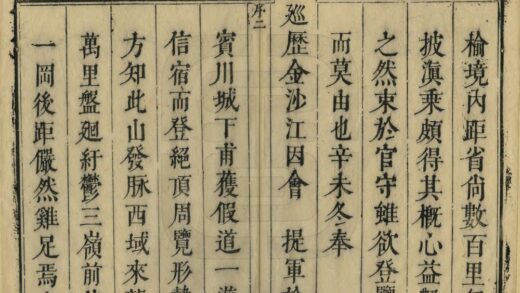 榆境內距省尙數百里
披滇乘頗得其概心益
之然束於官守雖欲登
而莫由也辛未冬奉
廵歷金沙江因會　提軍
序二
賓川城下甫獲假道一遊
信宿而登絕頂周覽形
方知此山發脉西域來
萬里盤廻紆鬱三嶺前
一岡後距儼然雞足焉